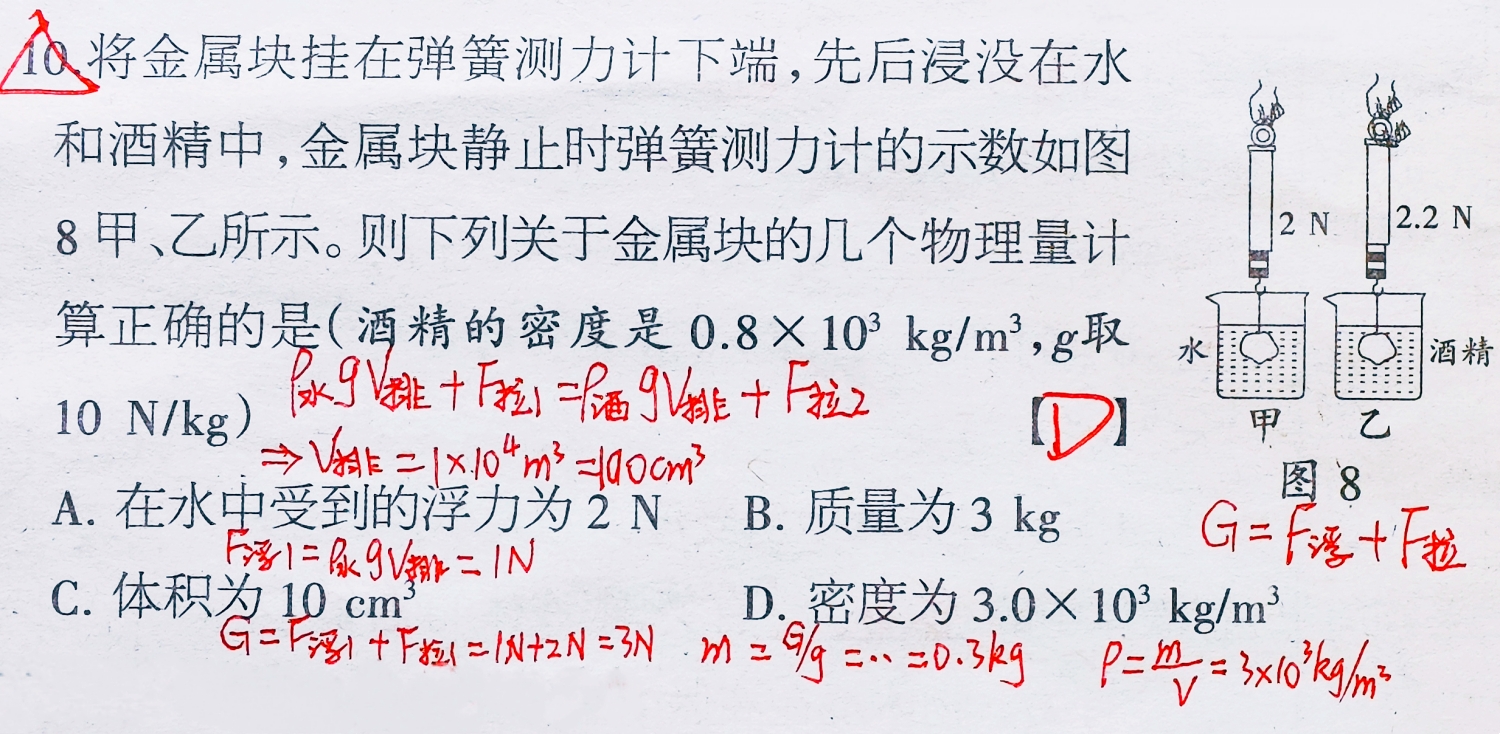 10.将金属块挂在弹簧测力计下端,先后浸没在水
和酒精中,金属块静止时弹簧测力计的示数如图
8 甲、乙所示。则下列关于金属块的几个物理量计
算正确的是(酒精的密度是 0.8×10³ kg/m³,g取
10 N/kg) 【D】
ρ水gV排+F拉1=ρ酒gV排+F拉2
⇒V排=1×10⁴m³=100cm³
A. 在水中受到的浮力为 2 N B. 质量为 3 kg
F浮1=ρ水gV排=1N
C. 体积为 10 cm³ D. 密度为 3.0×10³ kg/m³
G=F浮1+F拉1=1N+2N=3N m=G/g=…=0.3kg ρ=m/V=3×10³kg/m³
2 N 2.2 N
水 酒精
甲 乙
图 8
G=F浮+F拉